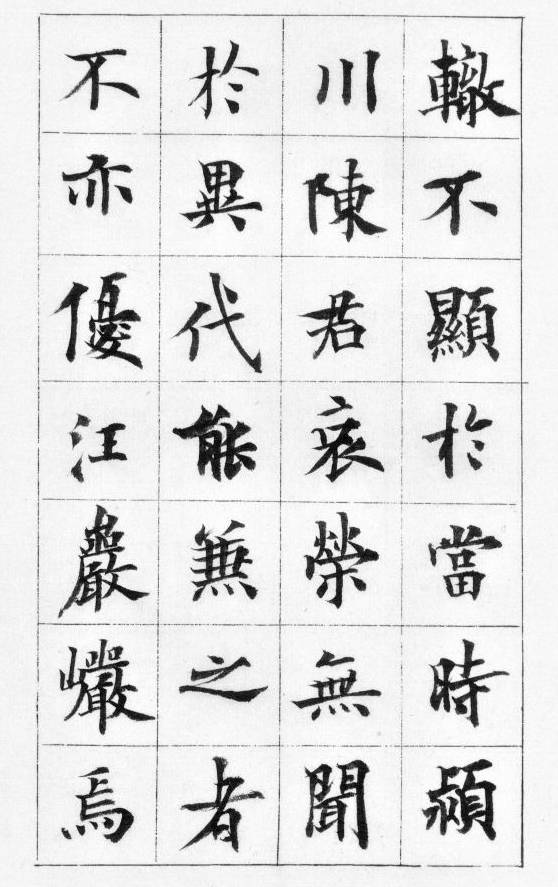 轍不顯於當時潁
川陳君哀榮無聞
於異代能兼之者
不亦優汪嚴巖焉